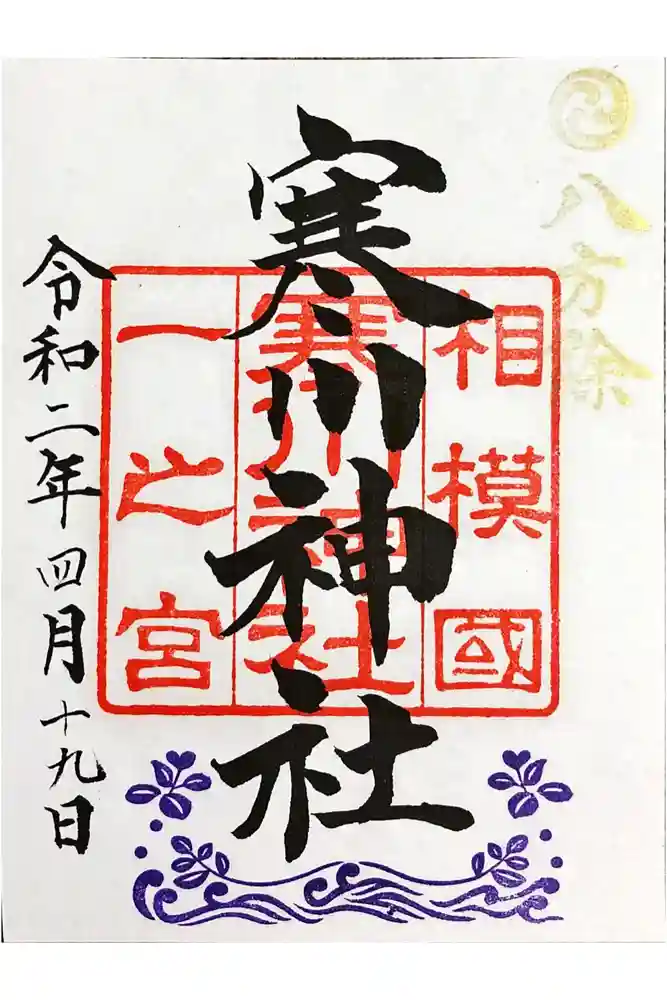 八方除
寒川神社
相模國
寒川神社
一之宮
令和二年四月十九日